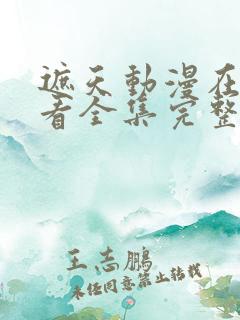 遮天動漫在
看全集完整
王志鹏
未经同意禁止转载